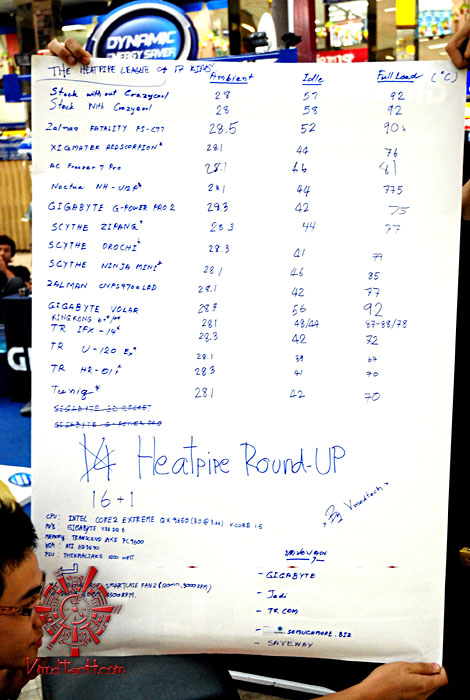 DYNAMIC
ENERGY SAVER
THE HEATPIPE LEAGUE of 17 KINGS
Ambient Idle Full Load (°C)
Stock without Crazycool 28 57 92
Stock With Crazycool 28 58 92
Zalman FATALITY FS-C77 28.5 52 90.5
XIGMATEK REDSCORPION* 28.1 44 76
AC Freezer 7 Pro 28.1 46 81
Noctua NH-U12P* 28.1 44 77.5
GIGABYTE G-POWER PRO 2 28.3 42 75
SCYTHE ZIPANG* 28.3 44 77
SCYTHE OROCHI* 28.3 41 77
SCYTHE NINJA MINI* 28.1 46 85
ZALMAN CNPS9700 LED 28.1 42 77
GIGABYTE VOLAR 28.3 56 92
KINGKONG 28.1 48/44 87-88/78
TR IFX-14* 28.3 42 72
TR U-120 Ex* 28.1 39 67
TR HR-01* 28.3 41 70
Tuniq* 28.1 42 70
GIGABYTE 3D ROCKET
GIGABYTE G-POWER PRO
14 Heatpipe Round-UP
16 + 1
By Vmodtech
CPU : INTEL CORE2 EXTREME QX 9650 (3.0@3.66) V.CORE 1.5
M/B : GIGABYTE X38 DQ 6
MEMORY: TRANSCEND AXE PC9600
VGA : ATI HD3870
PSU : THERMALTAKE 1200 WATT
SMARTCASE FAN 2 (120MM, 3000RPM)
- GIGABYTE
- Jedi
- TR.COM
- SOMUCHMORE.BIZ
- SAVEWAY
VmodtecH.com